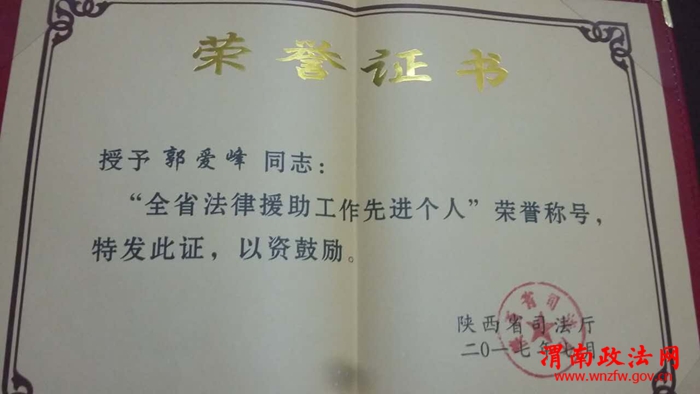 荣誉证书
授予郭爱峰同志：
“全省法律援助工作先进个人”荣誉称号，
特发此证，以资鼓励。
陕西省司法厅
二〇一七年七月
渭南政法网
www.wnzfw.gov.cn